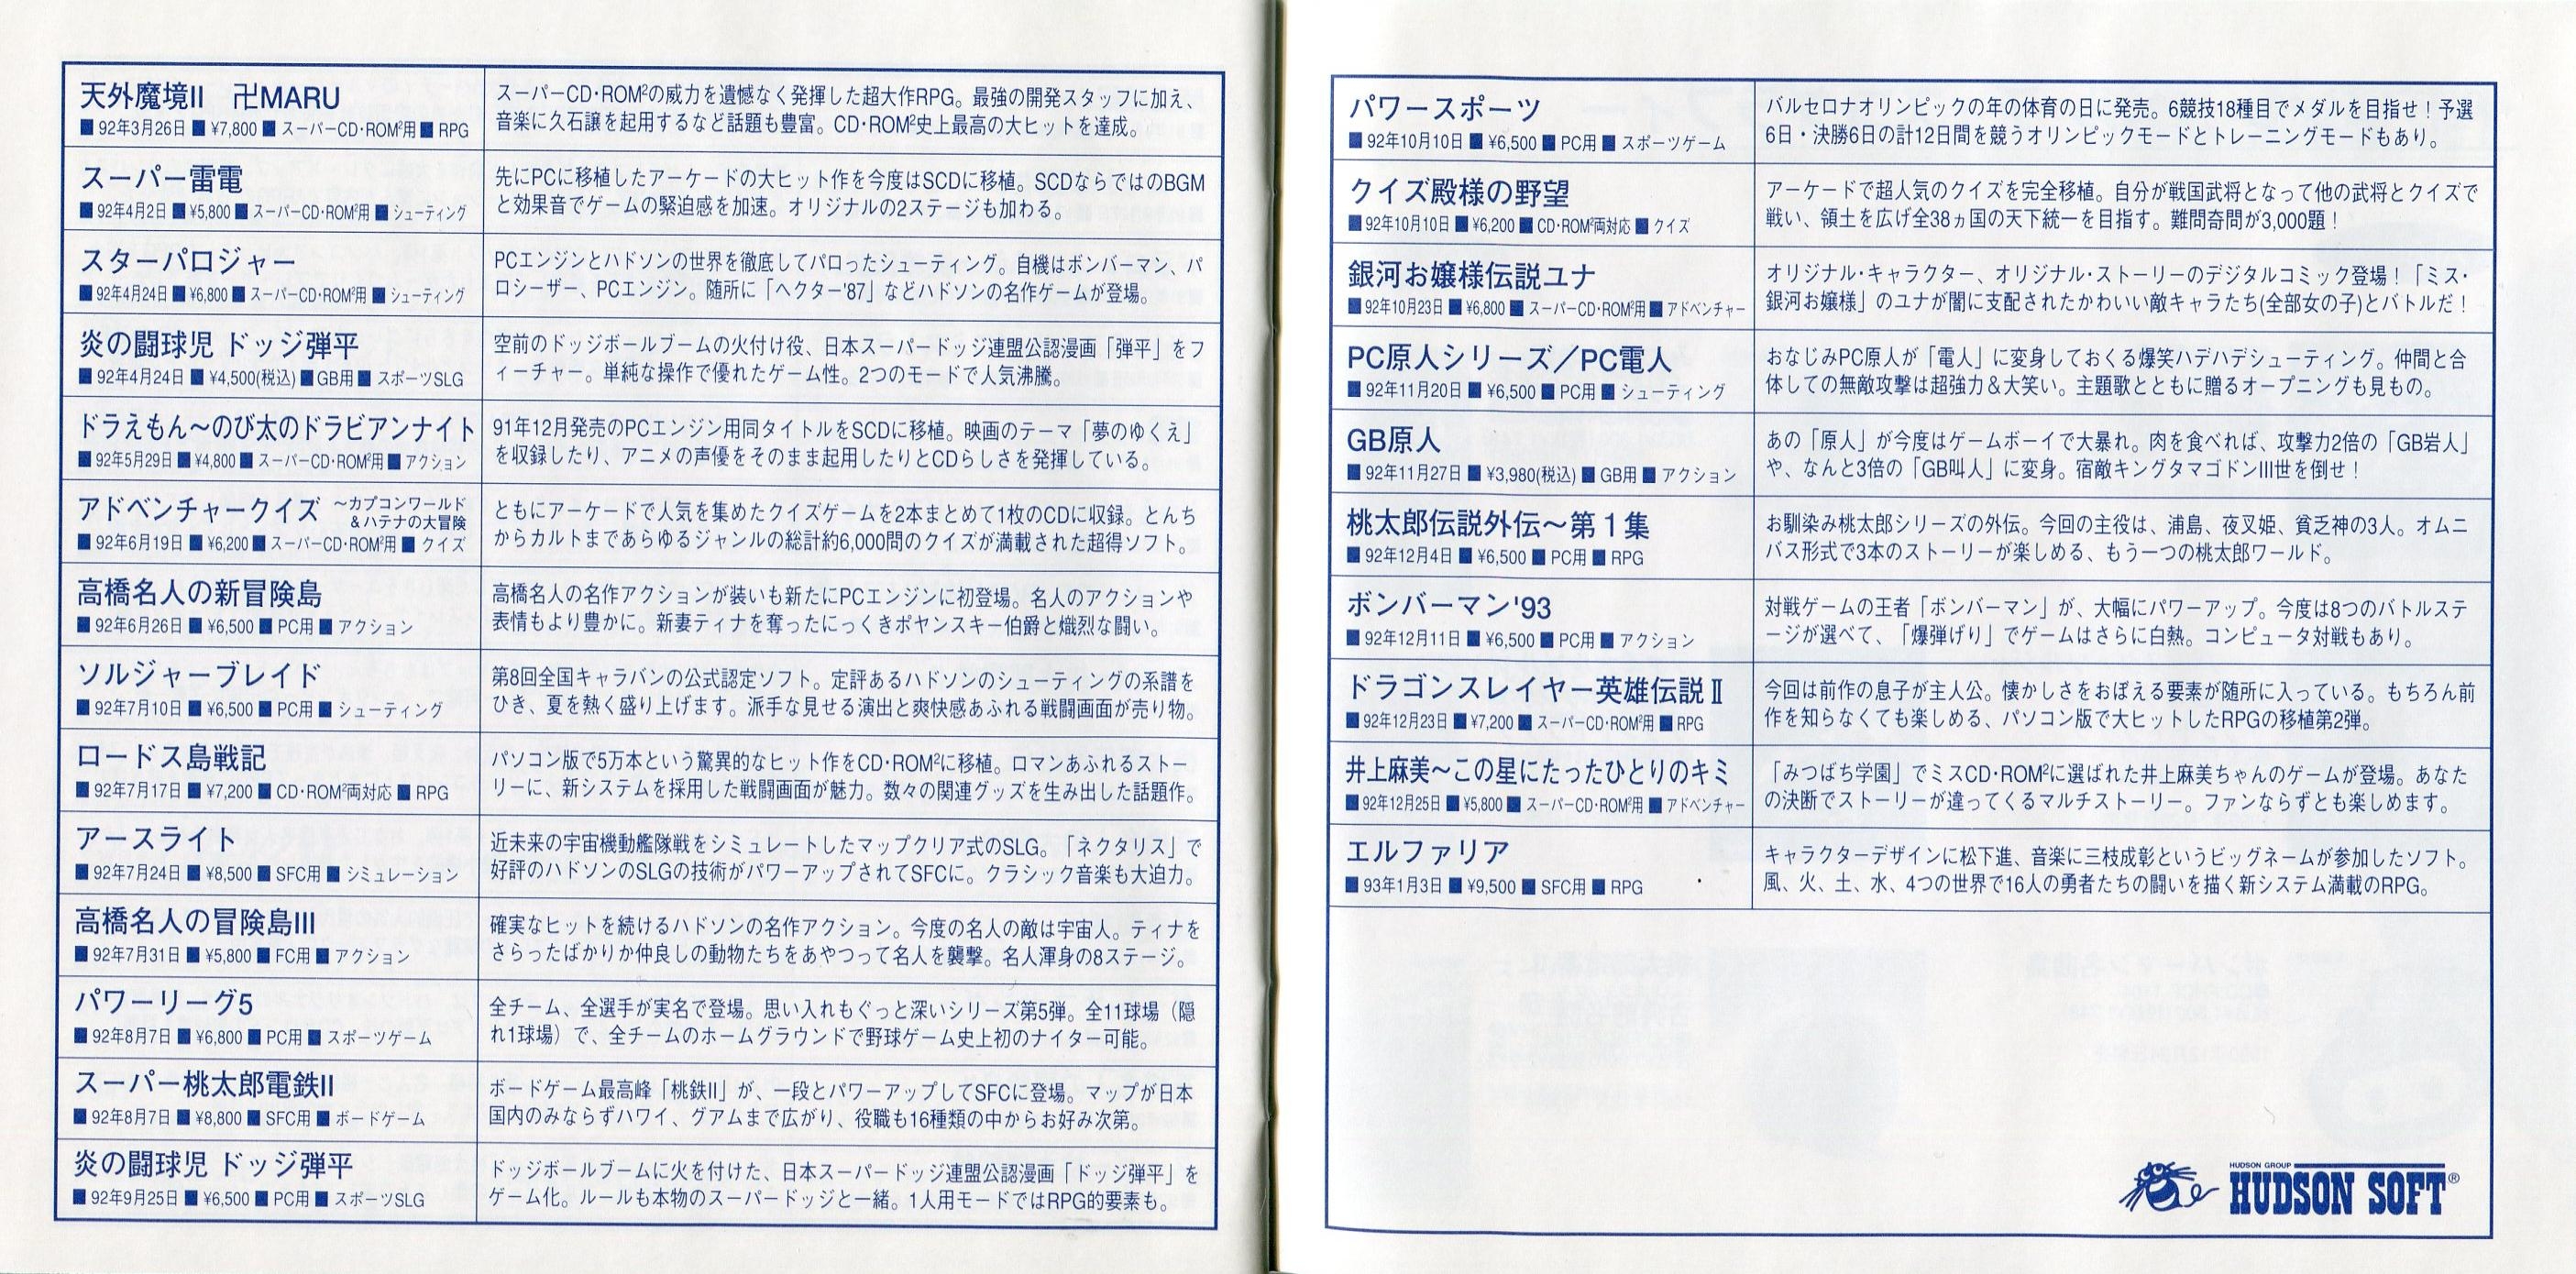 天外魔境II 卍MARU
■ 92年3月26日 ■ ¥7,800 ■ スーパーCD・ROM²用 ■ RPG
スーパーCD・ROM²の威力を遺憾なく発揮した超大作RPG。最強の開発スタッフに加え、
音楽に久石譲を起用するなど話題も豊富。CD・ROM²史上最高の大ヒットを達成。
スーパー雷電
■ 92年4月2日 ■ ¥5,800 ■ スーパーCD・ROM²用 ■ シューティング
先にPCに移植したアーケードの大ヒット作を今度はSCDに移植。SCDならではのBGM
と効果音でゲームの緊迫感を加速。オリジナルの2ステージも加わる。
スターパロジャー
■ 92年4月24日 ■ ¥6,800 ■ スーパーCD・ROM²用 ■ シューティング
PCエンジンとハドソンの世界を徹底してパロったシューティング。自機はボンバーマン、パ
ロシーザー、PCエンジン。随所に「ヘクター'87」などハドソンの名作ゲームが登場。
炎の闘球児 ドッジ弾平
■ 92年4月24日 ■ ¥4,500(税込) ■ GB用 ■ スポーツSLG
空前のドッジボールブームの火付け役、日本スーパードッジ連盟公認漫画「弾平」をフ
ィーチャー。単純な操作で優れたゲーム性。2つのモードで人気沸騰。
ドラえもん〜のび太のドラビアンナイト
■ 92年5月29日 ■ ¥4,800 ■ スーパーCD・ROM²用 ■ アクション
91年12月発売のPCエンジン用同タイトルをSCDに移植。映画のテーマ「夢のゆくえ」
を収録したり、アニメの声優をそのまま起用したりとCDらしさを発揮している。
アドベンチャークイズ 〜カプコンワールド
&ハテナの大冒険
■ 92年6月19日 ■ ¥6,200 ■ スーパーCD・ROM²用 ■ クイズ
ともにアーケードで人気を集めたクイズゲームを2本まとめて1枚のCDに収録。とんち
からカルトまであらゆるジャンルの総計約6,000問のクイズが満載された超得ソフト。
高橋名人の新冒険島
■ 92年6月26日 ■ ¥6,500 ■ PC用 ■ アクション
高橋名人の名作アクションが装いも新たにPCエンジンに初登場。名人のアクションや
表情もより豊かに。新妻ティナを奪ったにっくきボヤンスキー伯爵と熾烈な闘い。
ソルジャーブレイド
■ 92年7月10日 ■ ¥6,500 ■ PC用 ■ シューティング
第8回全国キャラバンの公式認定ソフト。定評あるハドソンのシューティングの系譜を
ひき、夏を熱く盛り上げます。派手な見せる演出と爽快感あふれる戦闘画面が売り物。
ロードス島戦記
■ 92年7月17日 ■ ¥7,200 ■ CD・ROM²両対応 ■ RPG
パソコン版で5万本という驚異的なヒット作をCD・ROM²に移植。ロマンあふれるストー
リーに、新システムを採用した戦闘画面が魅力。数々の関連グッズを生み出した話題作。
アースライト
■ 92年7月24日 ■ ¥8,500 ■ SFC用 ■ シミュレーション
近未来の宇宙機動艦隊戦をシミュレートしたマップクリア式のSLG。「ネクタリス」で
好評のハドソンのSLGの技術がパワーアップされてSFCに。クラシック音楽も大迫力。
高橋名人の冒険島III
■ 92年7月31日 ■ ¥5,800 ■ FC用 ■ アクション
確実なヒットを続けるハドソンの名作アクション。今度の名人の敵は宇宙人。ティナを
さらったばかりか仲良しの動物たちをあやつって名人を襲撃。名人渾身の8ステージ。
パワーリーグ5
■ 92年8月7日 ■ ¥6,800 ■ PC用 ■ スポーツゲーム
全チーム、全選手が実名で登場。思い入れもぐっと深いシリーズ第5弾。全11球場（隠
れ1球場）で、全チームのホームグラウンドで野球ゲーム史上初のナイター可能。
スーパー桃太郎電鉄II
■ 92年8月7日 ■ ¥8,800 ■ SFC用 ■ ボードゲーム
ボードゲーム最高峰「桃鉄II」が、一段とパワーアップしてSFCに登場。マップが日本
国内のみならずハワイ、グアムまで広がり、役職も16種類の中からお好み次第。
炎の闘球児 ドッジ弾平
■ 92年9月25日 ■ ¥6,500 ■ PC用 ■ スポーツSLG
ドッジボールブームに火を付けた、日本スーパードッジ連盟公認漫画「ドッジ弾平」を
ゲーム化。ルールも本物のスーパードッジと一緒。1人用モードではRPG的要素も。
パワースポーツ
■ 92年10月10日 ■ ¥6,500 ■ PC用 ■ スポーツゲーム
バルセロナオリンピックの年の体育の日に発売。6競技18種目でメダルを目指せ！予選
6日・決勝6日の計12日間を競うオリンピックモードとトレーニングモードもあり。
クイズ殿様の野望
■ 92年10月10日 ■ ¥6,200 ■ CD・ROM²両対応 ■ クイズ
アーケードで超人気のクイズを完全移植。自分が戦国武将となって他の武将とクイズで
戦い、領土を広げ全38ヵ国の天下統一を目指す。難問奇問が3,000題！
銀河お嬢様伝説ユナ
■ 92年10月23日 ■ ¥6,800 ■ スーパーCD・ROM²用 ■ アドベンチャー
オリジナル・キャラクター、オリジナル・ストーリーのデジタルコミック登場！「ミス・
銀河お嬢様」のユナが闇に支配されたかわいい敵キャラたち(全部女の子)とバトルだ！
PC原人シリーズ／PC電人
■ 92年11月20日 ■ ¥6,500 ■ PC用 ■ シューティング
おなじみPC原人が「電人」に変身しておくる爆笑ハデハデシューティング。仲間と合
体しての無敵攻撃は超強力&大笑い。主題歌とともに贈るオープニングも見もの。
GB原人
■ 92年11月27日 ■ ¥3,980(税込) ■ GB用 ■ アクション
あの「原人」が今度はゲームボーイで大暴れ。肉を食べれば、攻撃力2倍の「GB岩人」
や、なんと3倍の「GB叫人」に変身。宿敵キングタマゴドンIII世を倒せ！
桃太郎伝説外伝〜第1集
■ 92年12月4日 ■ ¥6,500 ■ PC用 ■ RPG
お馴染み桃太郎シリーズの外伝。今回の主役は、浦島、夜叉姫、貧乏神の3人。オムニ
バス形式で3本のストーリーが楽しめる、もう一つの桃太郎ワールド。
ボンバーマン'93
■ 92年12月11日 ■ ¥6,500 ■ PC用 ■ アクション
対戦ゲームの王者「ボンバーマン」が、大幅にパワーアップ。今度は8つのバトルステ
ージが選べて、「爆弾げり」でゲームはさらに白熱。コンピュータ対戦もあり。
ドラゴンスレイヤー英雄伝説II
■ 92年12月23日 ■ ¥7,200 ■ スーパーCD・ROM²用 ■ RPG
今回は前作の息子が主人公。懐かしさをおぼえる要素が随所に入っている。もちろん前
作を知らなくても楽しめる、パソコン版で大ヒットしたRPGの移植第2弾。
井上麻美〜この星にたったひとりのキミ
■ 92年12月25日 ■ ¥5,800 ■ スーパーCD・ROM²用 ■ アドベンチャー
「みつばち学園」でミスCD・ROM²に選ばれた井上麻美ちゃんのゲームが登場。あなた
の決断でストーリーが違ってくるマルチストーリー。ファンならずとも楽しめます。
エルファリア
■ 93年1月3日 ■ ¥9,500 ■ SFC用 ■ RPG
キャラクターデザインに松下進、音楽に三枝成彰というビッグネームが参加したソフト。
風、火、土、水、4つの世界で16人の勇者たちの闘いを描く新システム満載のRPG。
HUDSON GROUP
HUDSON SOFT®